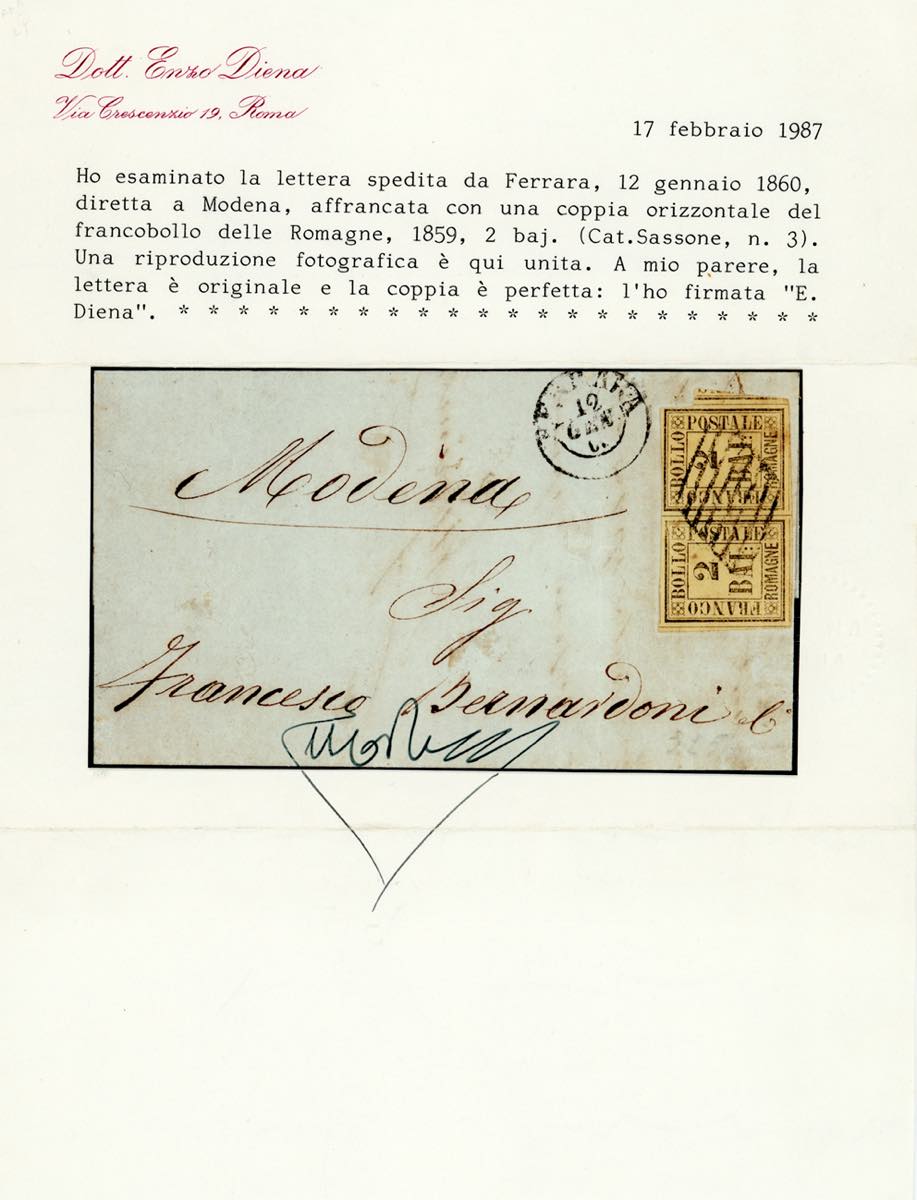 Dott. Enzo Diena
Via Crescenzio 19, Roma
17 febbraio 1987
Ho esaminato la lettera spedita da Ferrara, 12 gennaio 1860,
diretta a Modena, affrancata con una coppia orizzontale del
francobollo delle Romagne, 1859, 2 baj. (Cat.Sassone, n. 3).
Una riproduzione fotografica è qui unita. A mio parere, la
lettera è originale e la coppia è perfetta: l'ho firmata "E.
Diena". * * * * * * * * * * * * * * * * * * * * * *
FERRARA
12
GEN
Modena
Sig
Francesco Bernardoni
BOLLO POSTALE
2 BAI:
ROMAGNE
FRANCO
BOLLO POSTALE
2 BAI:
ROMAGNE
FRANCO